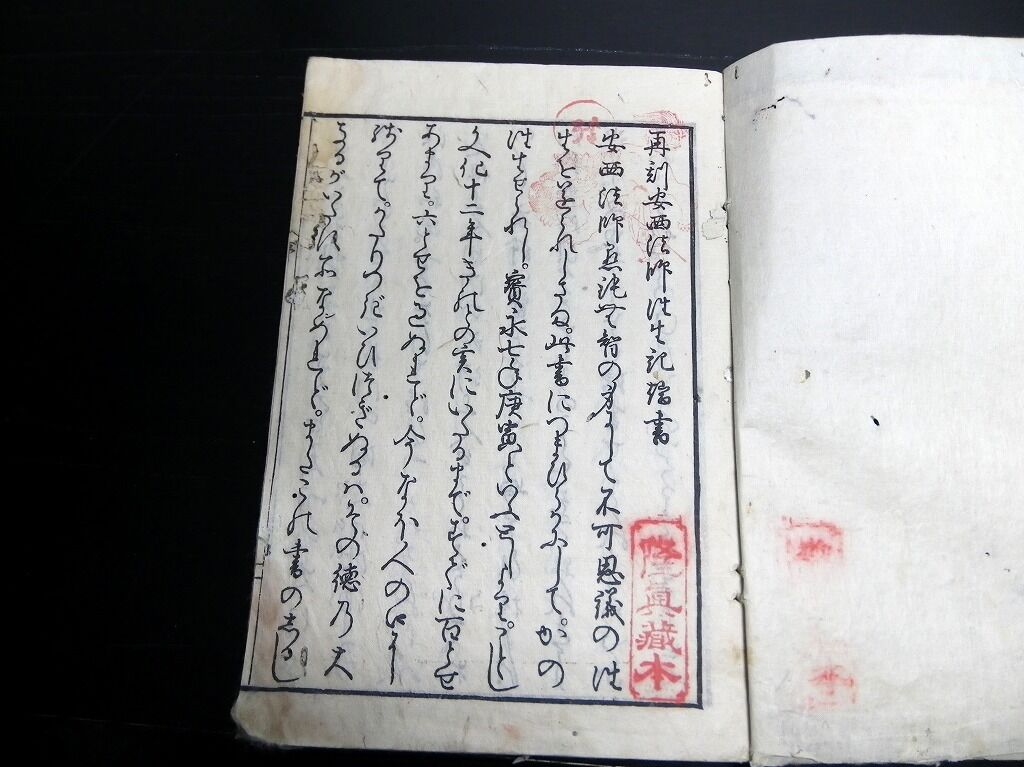 再刻安西法師往生記端書
安西法師愚鈍無智の身にして不可思議の往
生をとげられしさま。此書につまびらかにして。かの
往生せられし。寳永七年庚寅といへるとしより。ことし
文化十二年きのとの亥にいたるまで。すでに百とせ
あまり。六とせを過ぬれど。今なほ人の口に
残りて。かたりつぎいひつぎぬるは。その徳乃大
なるがいたす所なめれど。またこの書のしるし
隆真藏本